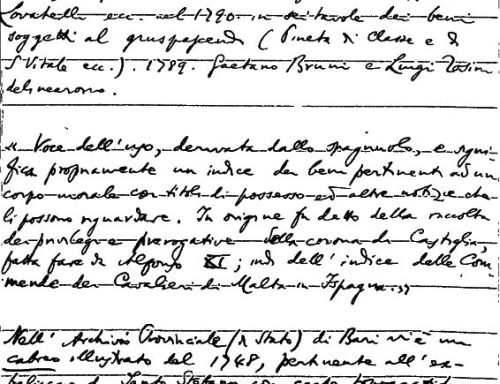 Lovatelli ecc. nel 1790 in sei tavole dei beni
soggetti al gruspascendi (Pineta di Classe e di
S Vitale ecc.). 1789. Gaetano Bruni e Luigi
delinearono.
« Voce dell'uso, derivata dallo spagnuolo, e signi-
fica propriamente un indice dei beni pertinenti ad un
corpo morale con titoli di possesso ed altre notizie che
li possono riguardare. In origine fu detto della raccolta
dei privilegi e prerogative della corona di Castiglia,
fatta fare da Alfonso XI; indi dell'indice delle Com-
mende dei Cavalieri di Malta in Ispagna.»
Nell' Archivio Provinciale (di Stato) di Bari vi è un
cabreo illustrato del 1748, pertinente all'ex-
di Santo Stefano con carte